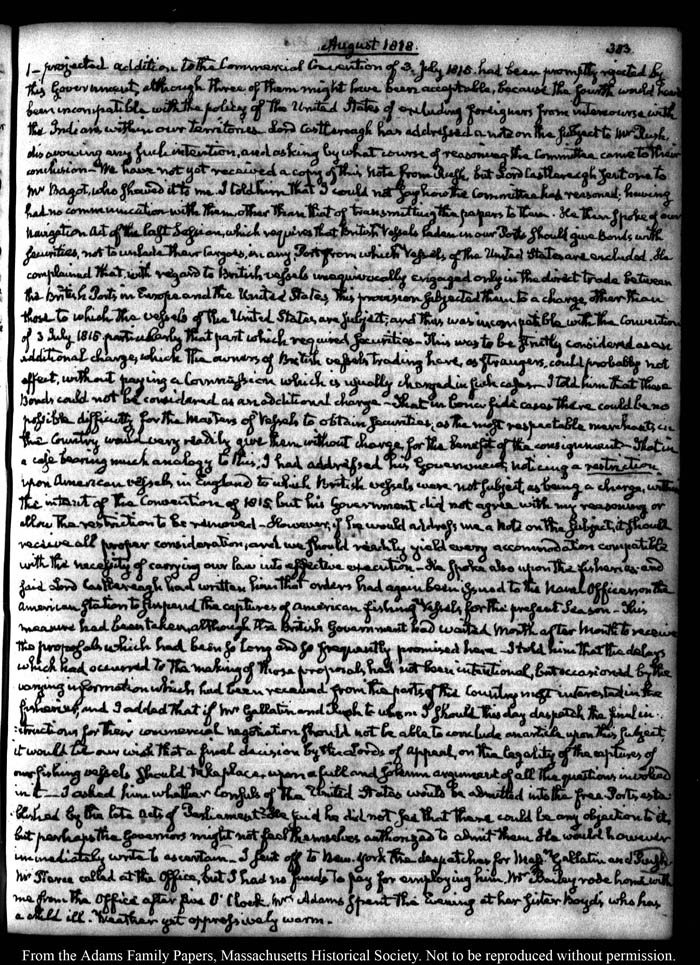 August 1818.
383
1— projected addition to the Commercial Convention of 3. July 1815. had been promptly rejected by
this Government, although three of them might have been acceptable, because the fourth would have
been incompatible with the policy of the United States of excluding foreigners from intercourse with
the Indians within our territories. Lord Castlereagh has addressed a note on the subject to Mr Rush,
disavowing any such intention, and asking by what course of reasoning the Committee came to their
conclusion— We have not yet received a copy of this Note from Rush, but Lord Castlereagh sent one to
Mr Bagot, who shewed it to me. I told him that I could not say how the Committee had reasoned; having
had no communication with them, other than that of transmitting the papers to them. He then spoke of our
Navigation Act of the last Session, which requires that British Vessels laden in our Ports should give Bonds with
securities, not to unlade their Cargoes, in any Port from which Vessels of the United States are excluded. He
complained that, with regard to British vessels unequivocally engaged only in the direct trade between
the British Ports in Europe and the United States, this provision subjected them to a charge, other than
those to which the vessels of the United States, are subject; and thus was incompatible with the Convention
of 3 July 1815. particularly that part which required securities. This was to be strictly considered as an
additional charge, which the owners of British vessels trading here, as strangers, could probably not
effect, without paying a Commission which is usually charged in such cases— I told him that those
Bonds could not be considered as an additional charge— That in bona fide cases there could be no
possible difficulty for the Masters of Vessels to obtain securities, as the most respectable merchants, in
the Country would very readily give them without charge, for the benefit of the consignment— That in
a case bearing much analogy to this, I had addressed his Government, noticing a restriction
upon American vessels in England to which British vessels were not subject, as being a charge, within
the intent of the Convention of 1815. but his Government did not agree with my reasoning or
allow the restriction to be removed— However, if he would address me a Note on the subject, it should
receive all proper consideration, and we should readily yield every accommodation compatible
with the necessity of carrying our law into effective execution— He spoke also upon the fisheries: and
said Lord Castlereagh had written him that orders had again been issued to the Naval Officers on the
American Station to suspend the captures of American fishing Vessels for the present Season— This
measure had been taken, although the British Government had waited Month after Month to receive
the proposals which had been so long and so frequently promised here— I told him that the delays
which had occurred to the making of those proposals had not been intentional, but occasioned by the
varying information which had been received from the parts of this Country most interested in the
fisheries, and I added that if Mr Gallatin and Rush to whom I should this day despatch the final in-
structions for their commercial negotiation should not be able to conclude an article upon this subject,
it would be our wish that a final decision by the Lords of Appeal, on the legality of the captures of
our fishing vessels should take place, upon a full and solemn argument of all the questions involved
in it— I asked him whether Consuls of the United States would be admitted into the free Ports, esta-
blished by the late Acts of Parliament? He said he did not see that there could be any objection to it,
but perhaps the Governors might not feel themselves authorized to admit them. He would however
immediately write to ascertain— I sent off to New-York the despatches for Mess.rs Gallatin and Rush.
Mr called at the Office, but I had no funds to pay for employing him. Mr Bailey rode home with
me from the Office after five O'Clock. Mrs Adams spent the Evening at her Sister Boyd's, who has
a child ill. Weather yet oppressively warm.
From the Adams Family Papers, Massachusetts Historical Society. Not to be reproduced without permission.